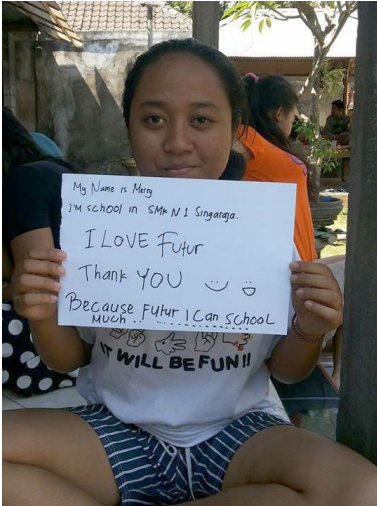 My Name is Merry
I'M SCHOOL IN SMK N 1 Singaraja.
I LOVE Futur
Thank YOU
Because Futur I Can SCHOOL
MUCH
IT WILL BE FUN!!